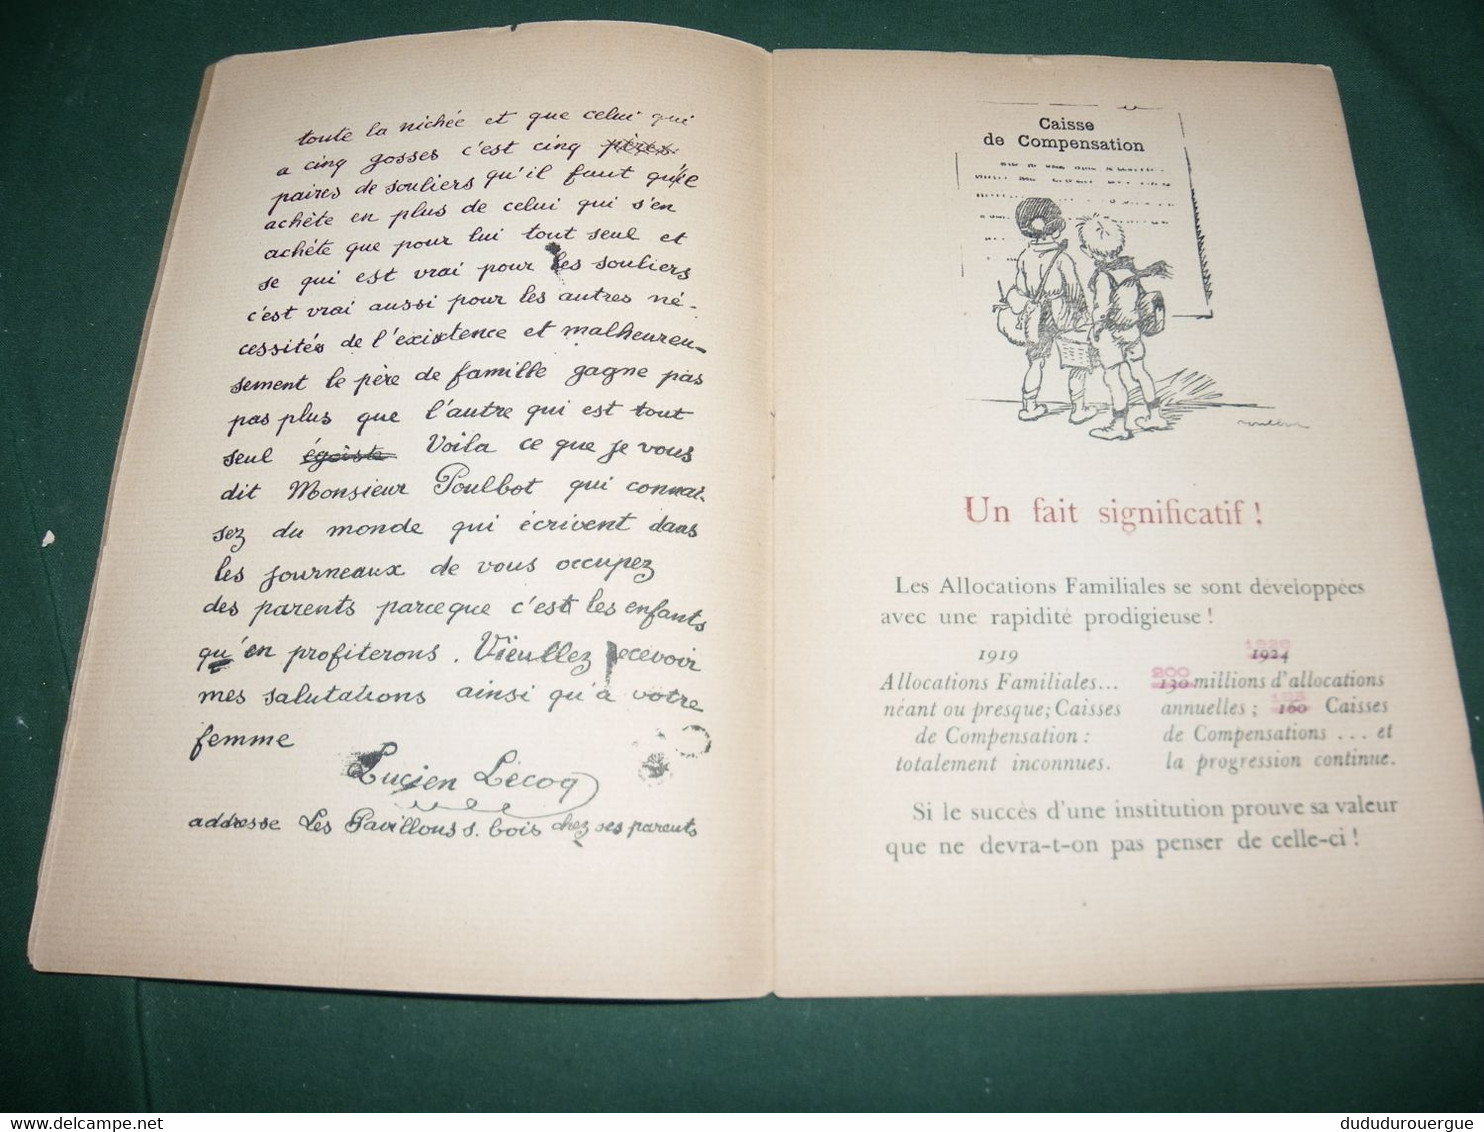 toute la nichée et que celui qui
a cinq gosses c'est cinq
paires de souliers qu'il faut qu'il
achète en plus de celui qui s'en
achéte que pour lui tout seul et
se qui est vrai pour les souliers
c'est vrai aussi pour les autres né-
cessités de l'existence et malheureu-
sement le père de famille gagne pas
pas plus que l'autre qui est tout
seul égoïste Voila ce que je vous
dit Monsieur Poulbot qui connai-
sez du monde qui écrivent dans
les journeaux de vous occupez
des parents parceque c'est les enfants
qu'en profiterons. Vieullez recevoir
mes salutations ainsi qu'à votre
femme
Lucien Lecoq
addresse Les Pavillons s. bois chez ses parents
Caisse
de Compensation
Un fait significatif !
Les Allocations Familiales se sont développées
avec une rapidité prodigieuse !
1919
Allocations Familiales...
néant ou presque; Caisses
de Compensation :
totalement inconnues.
1924
200
130 millions d'allocations
annuelles ; 160 Caisses
de Compensations ... et
la progression continue.
Si le succès d'une institution prouve sa valeur
que ne devra-t-on pas penser de celle-ci !
delcampe.net
dududurouergue